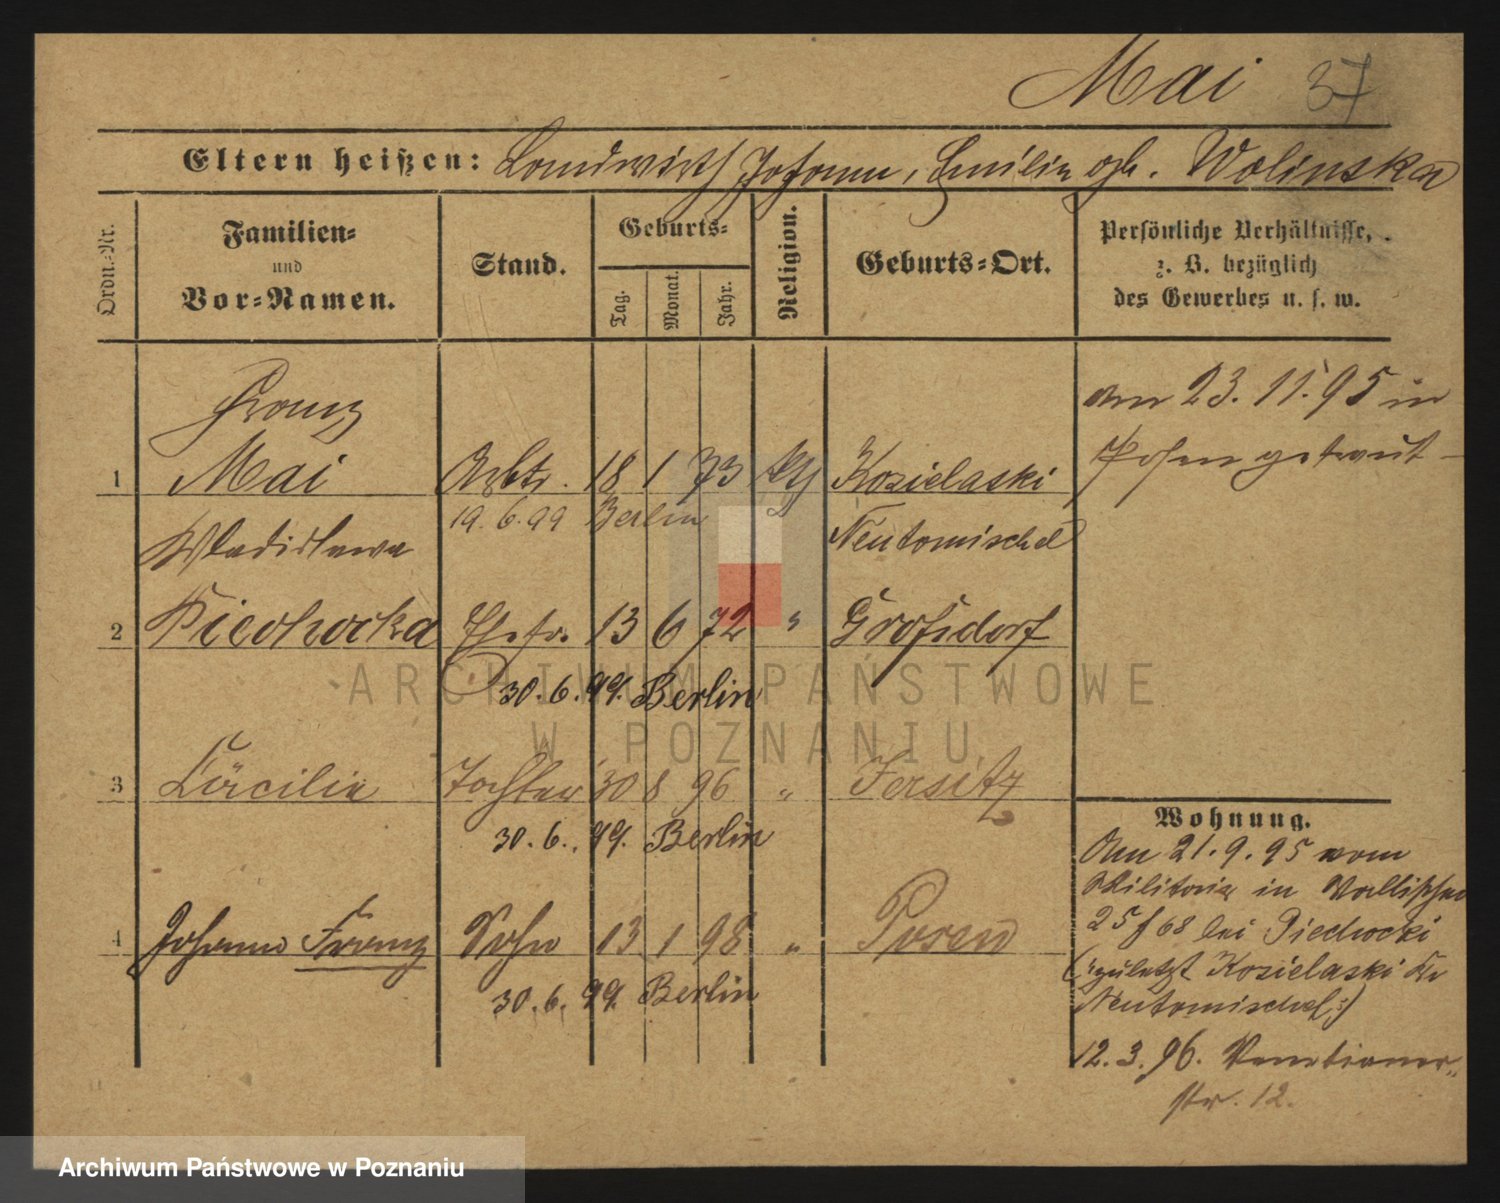 Mai 37
Eltern heißen: Landwirth Johann, Emilie geb. Wolinska
Ordn.-Nr.
Familien-
und
Vor-Namen.
Stand.
Geburts-
Tag.
Monat.
Jahr.
Religion.
Geburts-Ort.
Persönliche Verhältnisse,
z. B. bezüglich
des Gewerbes u. s. w.
Franz
1 Mai Arbtr. 18 1 73 kth Kozielaski
19.6.99 Berlin
Neutomischel
Wladislawa
2 Piechocka Ehefr. 13 6 72 " Großdorf
30.6.99. Berlin
3 Cäcilie Tochter 30 8 96 " Jersitz
30.6.99. Berlin
4 Johann Franz Sohn 13 1 98 " Posen
30.6.99. Berlin
am 23.11.95 in
Posen getraut
Wohnung.
Am 21.9.95 vom
Militair in Wallischei
25/68 bei Piechocki
(: zuletzt Kozielaski Kr
Neutomischel :)
12.3.96. Venetianer-
str. 12.
ARCHIWUM PAŃSTWOWE
W POZNANIU
Archiwum Państwowe w Poznaniu